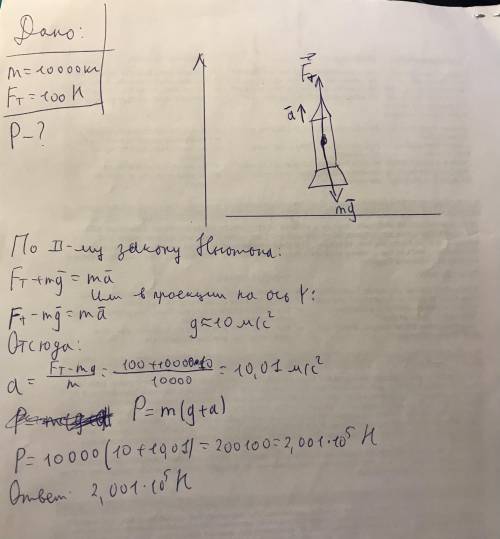 Дано:
m=10000кг
Fт=100 Н
P-?
F⃗т
a̅
mg̅
По II-му закону Ньютона:
F̅т+mg̅=ma̅
Или в проекции на ось Y:
Fт-mg̅=ma̅
g≈10 м/с²
Отсюда:
a= Fт-mg/m = 100+10000*10/10000 = 10,01 м/с²
P=m(g+a)
P=10000(10+10,01)=200100=2,001·10⁵ Н
Ответ: 2,001·10⁵ Н